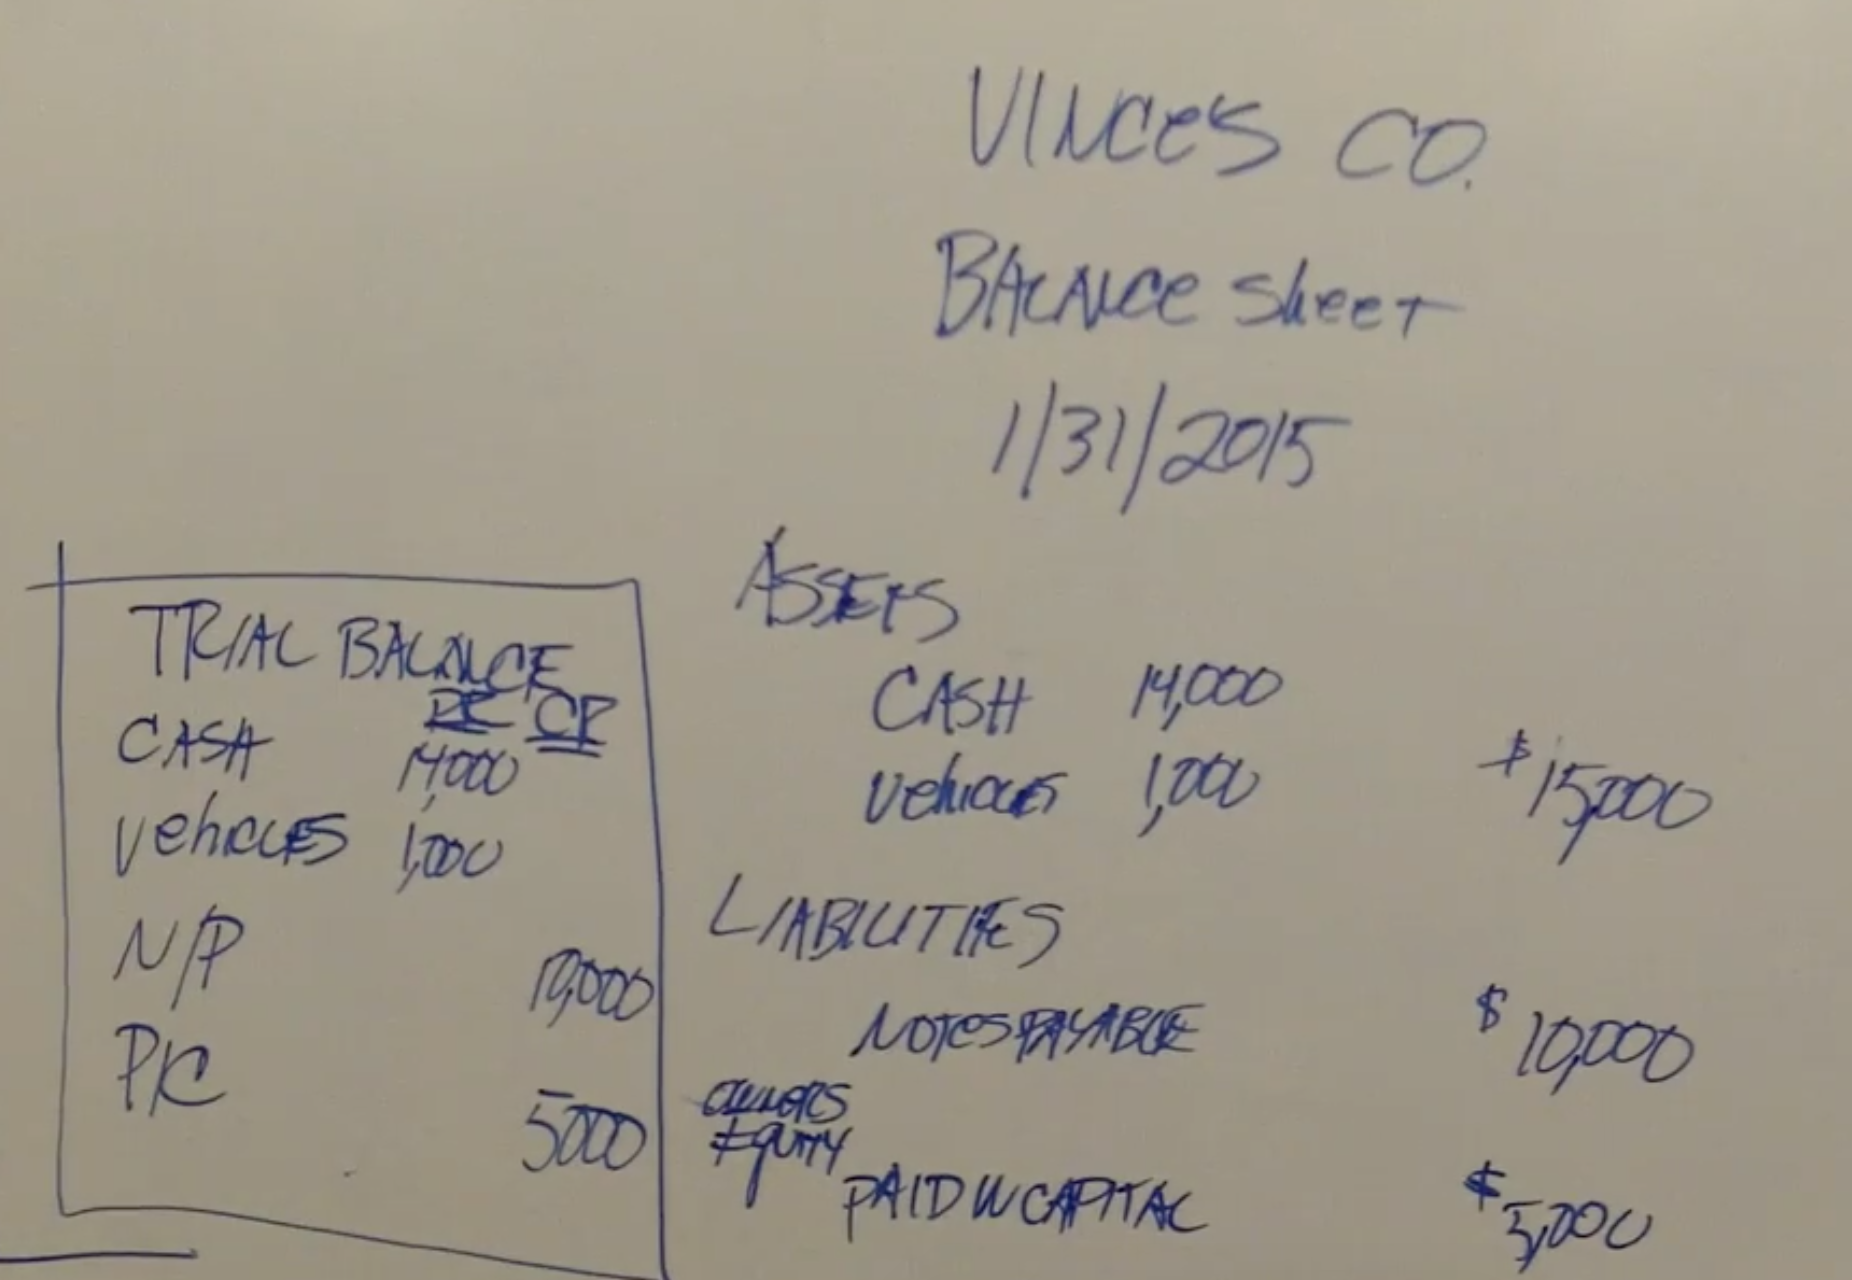 VINCES CO.
BALANCE Sheet
1/31/2015
TRIAL BALANCE
DR CR
CASH 14,000
VehicleS 1,000
N/P 10,000
PIC 5000
ASSETS
CASH 14,000
Vehicles 1,000 $15,000
LIABILITIES
NOTES PAYABLE $10,000
OWNERS
EQUITY
PAID IN CAPITAL $5,000